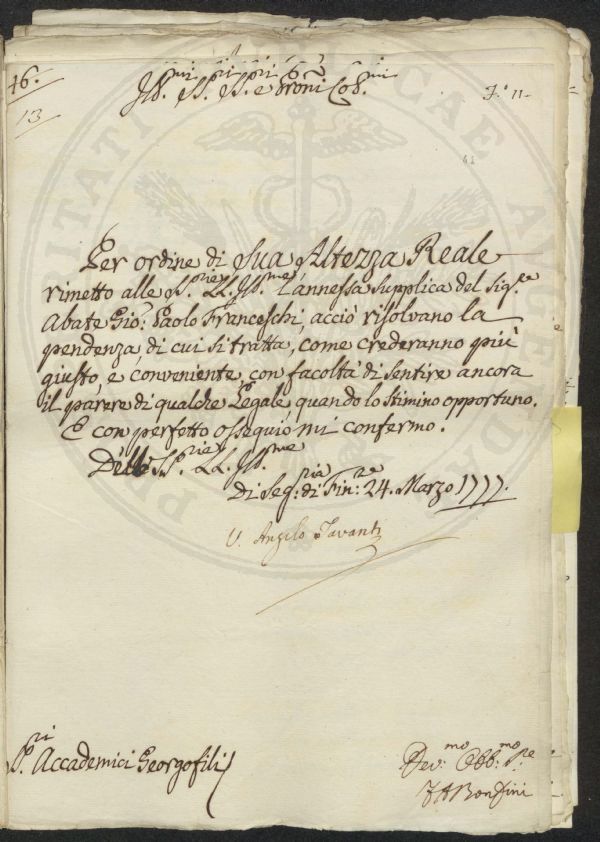 46.
13
Ill.mi SS.ri SS.ri e Proni Col.mi
F.o 11.
Per ordine di Sua Altezza Reale
rimetto alle SS.rie LL. Ill.me l'annessa supplica del Sig.re
Abate Gio: Paolo Franceschi, acciò risolvano la
pendenza di cui si tratta, come crederanno più
giusto, e conveniente con facoltà di sentire ancora
il parere di qualche Legale quando lo stimino opportuno.
E con perfetto ossequio mi confermo.
Delle SS.rie LL. Ill.me
Di Seg.ria di Fin.ze 24. Marzo 1777.
V. Angelo Tavanti
S.ri Accademici Georgofili
Dev.mo Obb.mo S.re